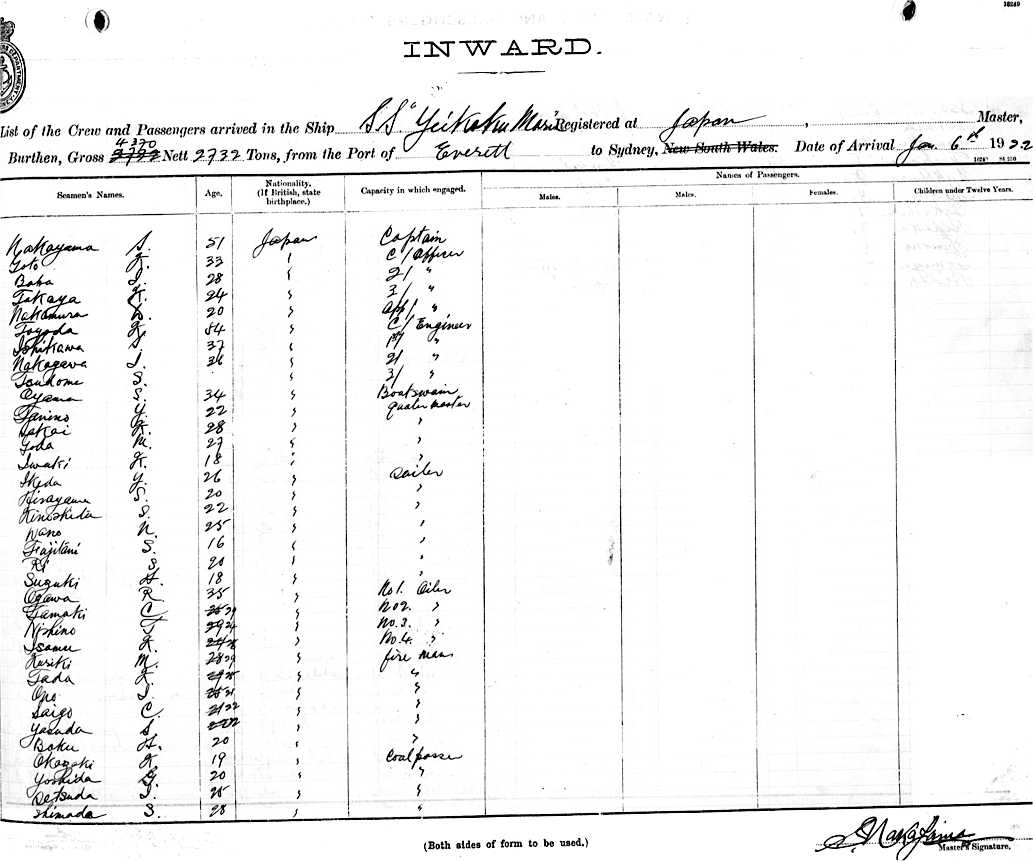 16249
INWARD.
List of the Crew and Passengers arrived in the Ship S.S. "Yeikoku Maru" Registered at Japan, Master,
4370
Burthen, Gross 2732 Nett 2732 Tons, from the Port of Everett to Sydney, New South Wales. Date of Arrival Jan 6th 1922
Names of Passengers.
Seamen's Names. Age. Nationality. (If British, state birthplace.) Capacity in which engaged. Males. Males. Females. Children under Twelve Years.
Nakayama S. 51 Japan Captain
Goto K. 33 " C/ Officer
Baba I. 28 " 2/ "
Takaya K. 24 " 3/ "
Nakamura 20 " App/ "
Toyoda K. 54 " C/ Engineer
Ishikawa 37 " 1st "
Nakagawa I. 36 " 2/ "
Tsukome S. " 3/ "
Oyama S. 34 " Boatswain
Tanino Y. 22 " Quater master
Sakai K. 28 " "
Toda M. 27 " "
Iwaki K. 18 " "
Ikeda Y. 26 " Sailer
Hirayama S. 20 " "
Kinoshida S. 22 " "
Wano N. 25 " "
Fujitani S. 16 " "
Ri S. 20 " "
Suzuki H. 18 " "
Ogawa R. 35 " No1. Oiler
Tamaki C. " No2. "
Nishino T. " No.3. "
Isamu K. " No.4. "
Kuriki M. 29 " fire man
Tada K. " "
Ono I. " "
Saigo C. 22 " "
Yasuda S. " "
Boku H. 20 " "
Okazaki K. 19 " Coalpasser
Yoshida G. 20 " "
Detsuda I. 25 " "
Shimada S. 28 " "
(Both sides of form to be used.)
S. Nakayama
Master's Signature.